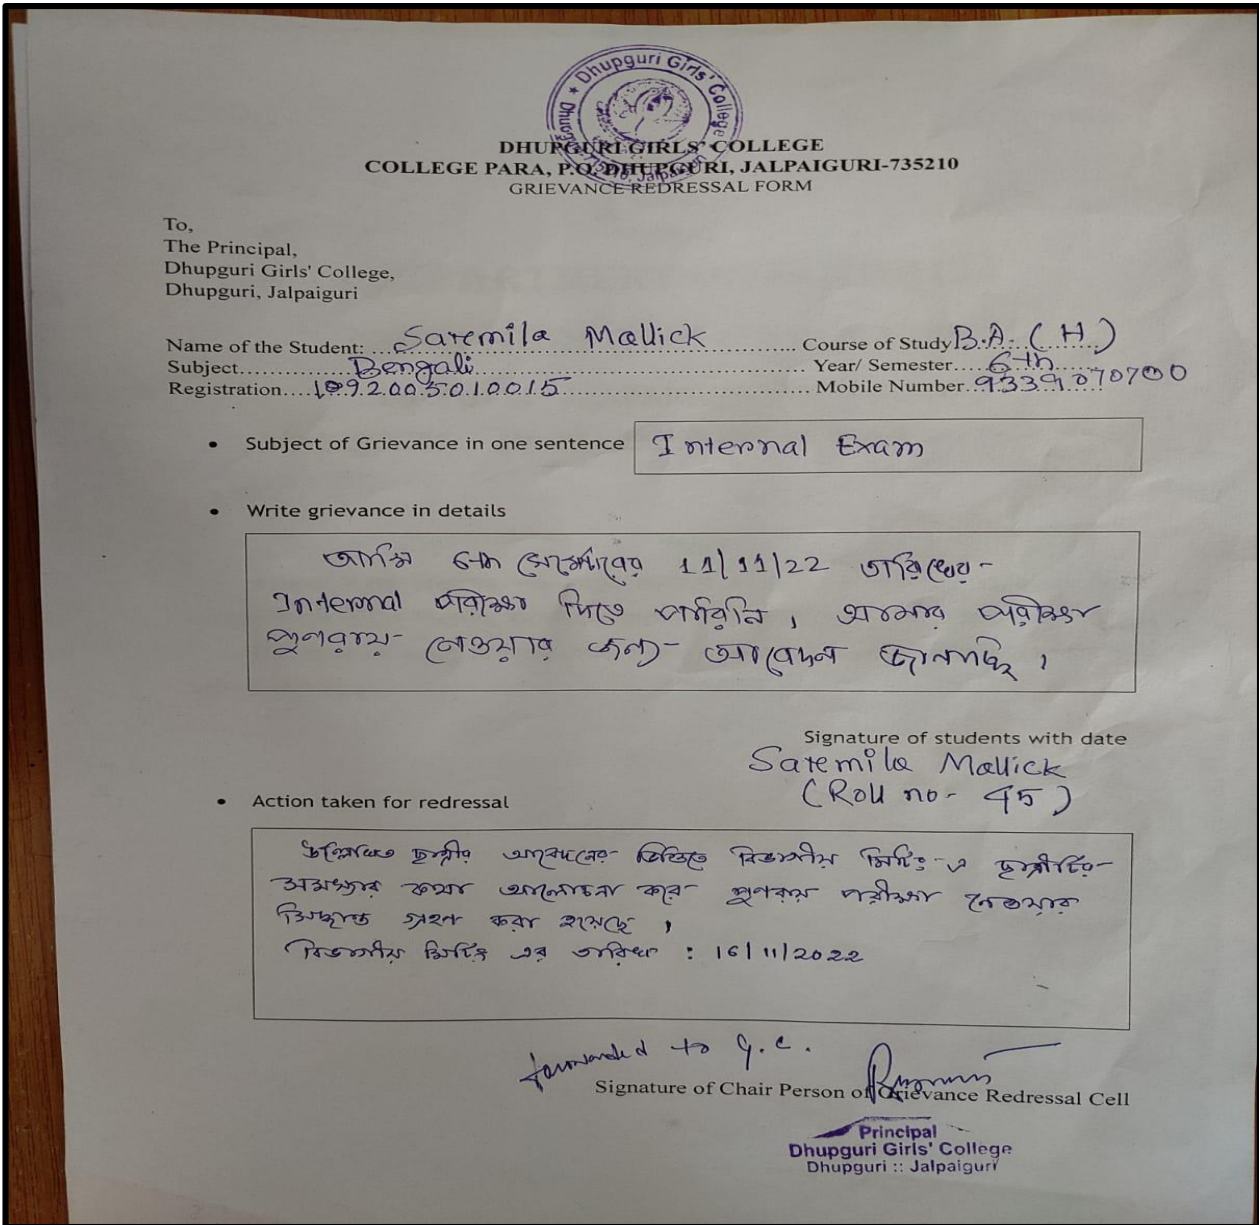 Dhupguri Girls' College
DHUPGURI GIRLS' COLLEGE
COLLEGE PARA, P.O. DHUPGURI, JALPAIGURI-735210
GRIEVANCE REDRESSAL FORM
To,
The Principal,
Dhupguri Girls' College,
Dhupguri, Jalpaiguri
Name of the Student: Saremila Mallick Course of Study B.A. (H)
Subject Bengali Year/ Semester 6th
Registration 1092005010015 Mobile Number 9339070700
• Subject of Grievance in one sentence Internal Exam
• Write grievance in details
আমি 6th সেমেস্টারের 11/11/22 তারিখের-
Internal পরীক্ষা দিতে পারিনি। আমার পরীক্ষা
পুণরায়- নেওয়ার জন্য- আবেদন জানাচ্ছি।
Signature of students with date
Saremila Mallick
(Roll no- 45)
• Action taken for redressal
উল্লিখিত ছাত্রীর আবেদনের ভিত্তিতে বিভাগীয় মিটিং-এ ছাত্রীটির-
সমস্যার কথা আলোচনা করে- পুণরায় পরীক্ষা নেওয়ার
সিদ্ধান্ত গ্রহণ করা হয়েছে।
বিভাগীয় মিটিং এর তারিখ : 16/11/2022
forwarded to G.C.
Signature of Chair Person of Grievance Redressal Cell
Principal
Dhupguri Girls' College
Dhupguri :: Jalpaiguri